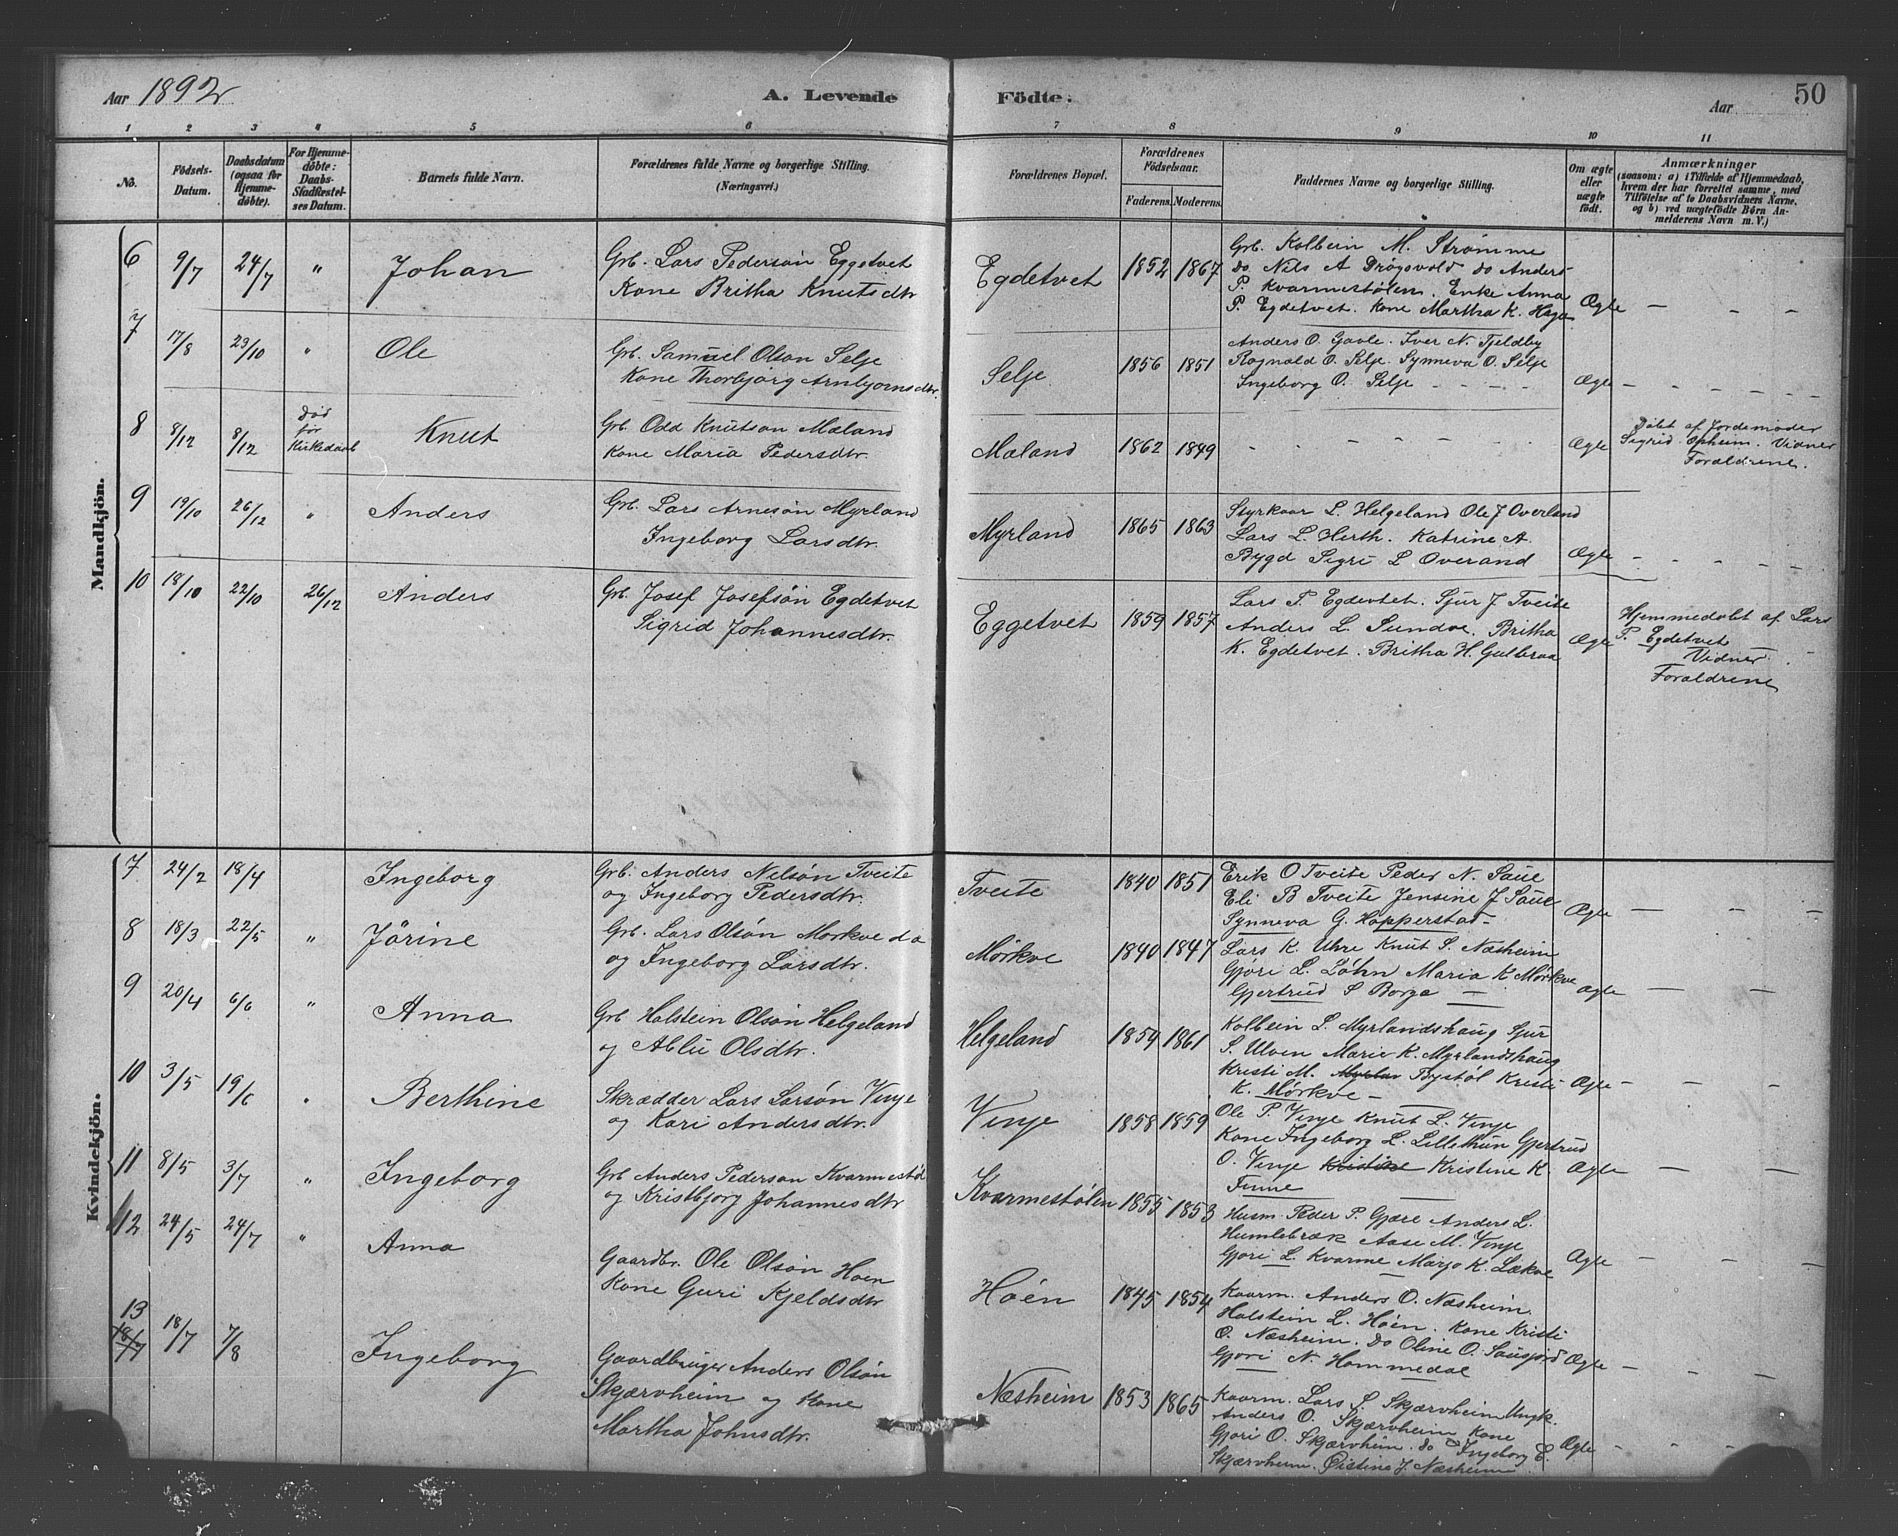 Aar 1892 A. Levende Födte. Aar 50
1 2 3 4 5 6 7 8 9 10 11
No. Födsels-Datum. Daabsdatum (ogsaa for Hjemmedöbte). For Hjemmedöbte: Daabs-Stadfæstelses Datum. Barnets fulde Navn. Forældrenes fulde Navne og borgerlige Stilling. (Næringsvei.) Forældrenes Bopæl. Forældrenes Födselsaar. Faderens. Moderens. Faddernes Navne og borgerlige Stilling. Om ægte eller uægte födt. Anmærkninger (saasom: a) i Tilfælde af Hjemmedaab, hvem der har forrettet samme, med Tilföielse af to Daabsvidners Navne, og b) ved uægtefödte Börn Anmelderens Navn m. V.)
Mandkjön.
6 9/7 24/7 " Johan Grb. Lars Pederson Eggetvet
Kone Britha Knutsdtr
Egdetvet 1852 1867 Grb. Kolbein M. Strømme
do Nils A Drøgsvold do Anders
P. Kvarmestølen. Enke Anna
P. Egdetvet. Kone Martha K. Haga Ægte — — —
7 17/8 23/10 " Ole Grb. Samuel Olson Selje
Kone Thorbjørg Arnbjørnsdtr.
Selje 1856 1851 Anders O. Gavle. Iver N. Tjeldby
Ragnald O. Selje. Synneva O. Selje
Ingeborg O. Selje - - - - Ægte — - - - -
8 8/12 8/12 død før Kirkedaab Knut Grb. Odd Knutson Mæland
Kone Maria Pedersdtr.
Mæland 1862 1849 - - - - - - - Ægte Døbt af Jordemoder
Sigrid Opheim. Vidner
Forældrene.
9 19/10 26/12 " Anders Grb. Lars Arneson Myrland
Ingeborg Larsdtr.
Myrland 1865 1863 Styrkaar L. Helgeland Ole J Overland
Lars L. Herth. Katrine A.
Bygd Sigri L Overand Ægte - - - - -
10 18/10 22/10 26/12 Anders Grb. Josef Josefsön Egdetvet
Sigrid Johannesdtr.
Eggetvet 1859 1857 Lars P. Egdevtet. Sjur J Tveite
Anders L. Sundve. Britha
K. Egdetvet. Britha H. Gulbraa Ægte Hjemmedøbt af Lars
P. Egdetvet
Vidner
Forældrene
Kvindekjön.
7 24/2 18/4 Ingeborg Grb. Anders Nelsön Tveite
og Ingeborg Pedersdtr.
Tveite 1840 1851 Erik O Tveite Peder N. Saue
Eli B Tveite Jensine J Saue
Synneva G. Hopperstad - Ægte — — —
8 18/3 22/5 " Jørine Grb. Lars Olsön Mørkve do
og Ingeborg Larsdtr.
Mørkve 1840 1847 Lars K. Uhre Knut S. Næsheim
Gjøri L. Løhn Maria K Mørkve
Gjertrud S Borge — Ægte — — —
9 20/4 6/6 " Anna Grb Holstein Olsön Helgeland
og Ablu Olsdtr.
Helgeland 1854 1861 Kolbein L. Myrlandshaug Sjur
S. Ulven Marie K. Myrlandshaug
Kristi M. Myrlan Bystøl Kristi
K. Mørkve — Ægte - — — —
10 3/5 19/6 " Berthine Skrædder Lars Larsön Vinje
og Kari Andersdtr.
Vinje 1858 1859 Ole P. Vinje Knut L. Vinje
Kone Ingeborg L. Lillethun Gjertrud
O. Vinje Kristine Kristine K.
Finne Ægte — — —
11 8/5 3/7 " Ingeborg Grb Anders Pederson Kvarmestøl
og Kristbjørg Johannesdtr
Kvarmestølen 1855 1853 Husm. Peder P. Gjære Anders L.
Humlebræk Aase M. Vinje
Gjøri L. Kvarme Marjo K. Lækve Ægte — — —
12 24/5 24/7 " Anna Gaardbr. Ole Olsön Høen
Kone Guri Kjeldsdtr
Høen 1845 1854 Kaarm. Anders O. Næsheim.
Holstein L. Høen. Kone Kristi
O. Næsheim. do Oline O. Sausjord
Gjøri N. Hommedal Ægte — — —
13 18/7 18/7 7/8 Ingeborg Gaardbruger Anders Olsön
Skjærvheim og Kone
Martha Johnsdtr.
Næsheim 1853 1865 Kaarm. Lars S Skjærvheim Ungk.
Anders O. Skjærvheim Kone
Gjøri O. Skjærvheim. do Ingeborg E.
Skjærvheim. Øistina J. Næsheim Ægte - - - -